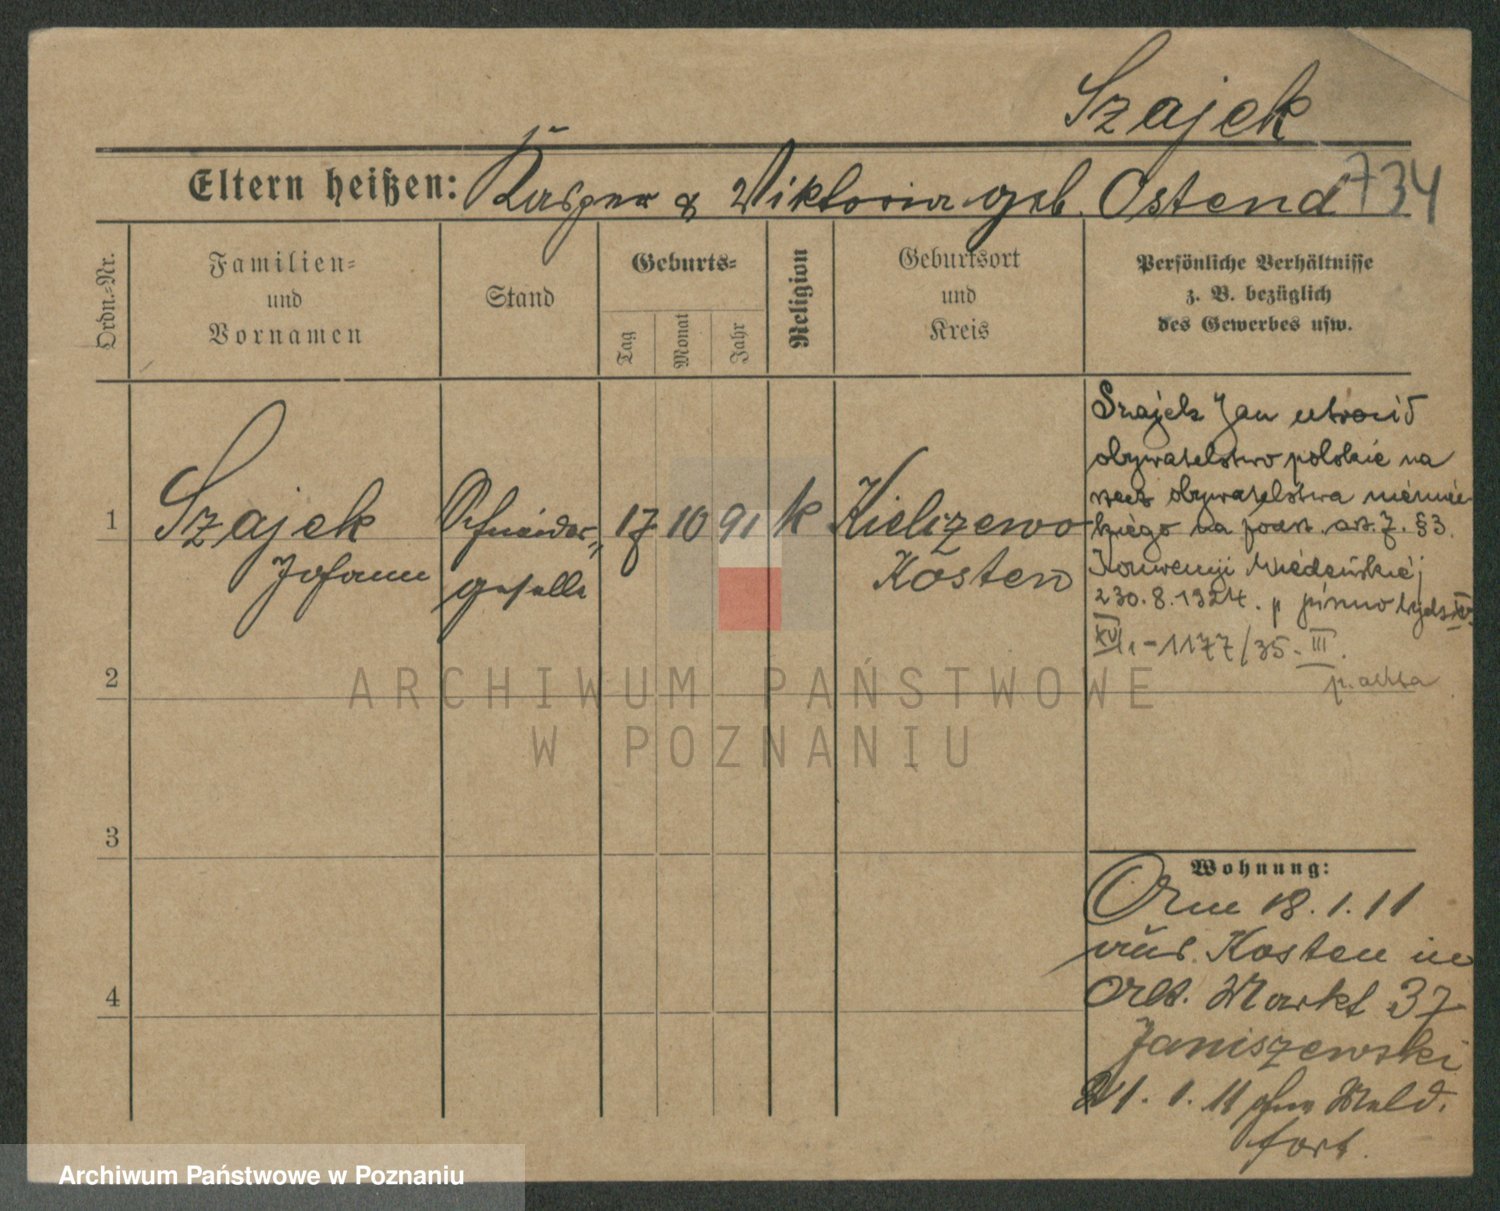 Szajek
Eltern heißen: Kasper & Viktoria geb. Ostend
734
Ordn.-Nr.
Familien-
und
Vornamen
Stand
Geburts-
Tag
Monat
Jahr
Religion
Geburtsort
und
Kreis
Persönliche Verhältnisse
z. B. bezüglich
des Gewerbes usw.
1
Szajek
Johann
Schneider-
geselle
17 10 91 k
Kielczewo
Kosten
Szajek Jan utracił
obywatelstwo polskie na
rzecz obywatelstwa niemiec-
kiego na podst. art. 7. § 3.
Konwencji Wiedeńskiej
z 30.8.1924. p pismo
XVI 1-1177/35. III.
p. akta
2
3
4
Wohnung:
Am 18.1.11
aus Kosten in
Markt 37
Janiszewski
21.1.11 ohne Meld.
fort.
ARCHIWUM PAŃSTWOWE
W POZNANIU
Archiwum Państwowe w Poznaniu